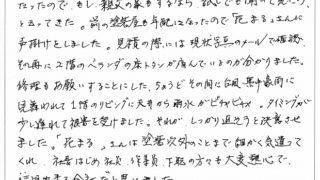 だったので、もし、親父の家もするなら、試しでも聞いて見たら
と云ってきた。前の塗装屋も年配になったので「花まる」さんに
声掛けしました。見積の際には現状写真のメールで確認
その時に2階のベランダの床トタンが傷んでいるのが分かりました。
修理もお願いすることにした、ちょうどその間に台風、集中豪雨に
見舞われて1階のリビングに天井から雨水がピチャピチャ。タイミングが
少し遅れて被害を受けました。それがしっかり追をうと決意させ
ました。「花まる」さんは塗装以外のことまで細かく気遣って
くれ、社長はじめ社員、作業員、下職の方々も大変熱心で、